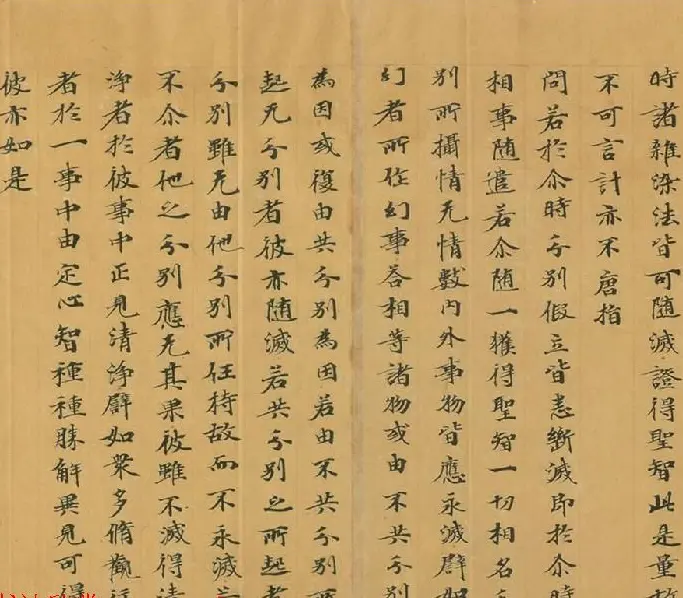 時諸雜染法皆可随滅證得聖智此是量故
不可言計亦不唐捐
問若於尒時分別假立皆悉斷滅即於尒時
相事随遣若尒随一獲得聖智一切相名
別所攝情无情數內外事物皆應永滅譬如
幻者所住幻事荅相等諸物或由不共分別
為因或復由共分別為因若由不共分別
起无分別者彼亦随滅若共分別之所起者
分別雖无由他分別所任持故而不永滅若
不尒者他之分別應无其果彼雖不滅得清
淨者於彼事中正見清淨譬如衆多脩觀行
者於一事中由定心智種種勝解異見可得
彼亦如是